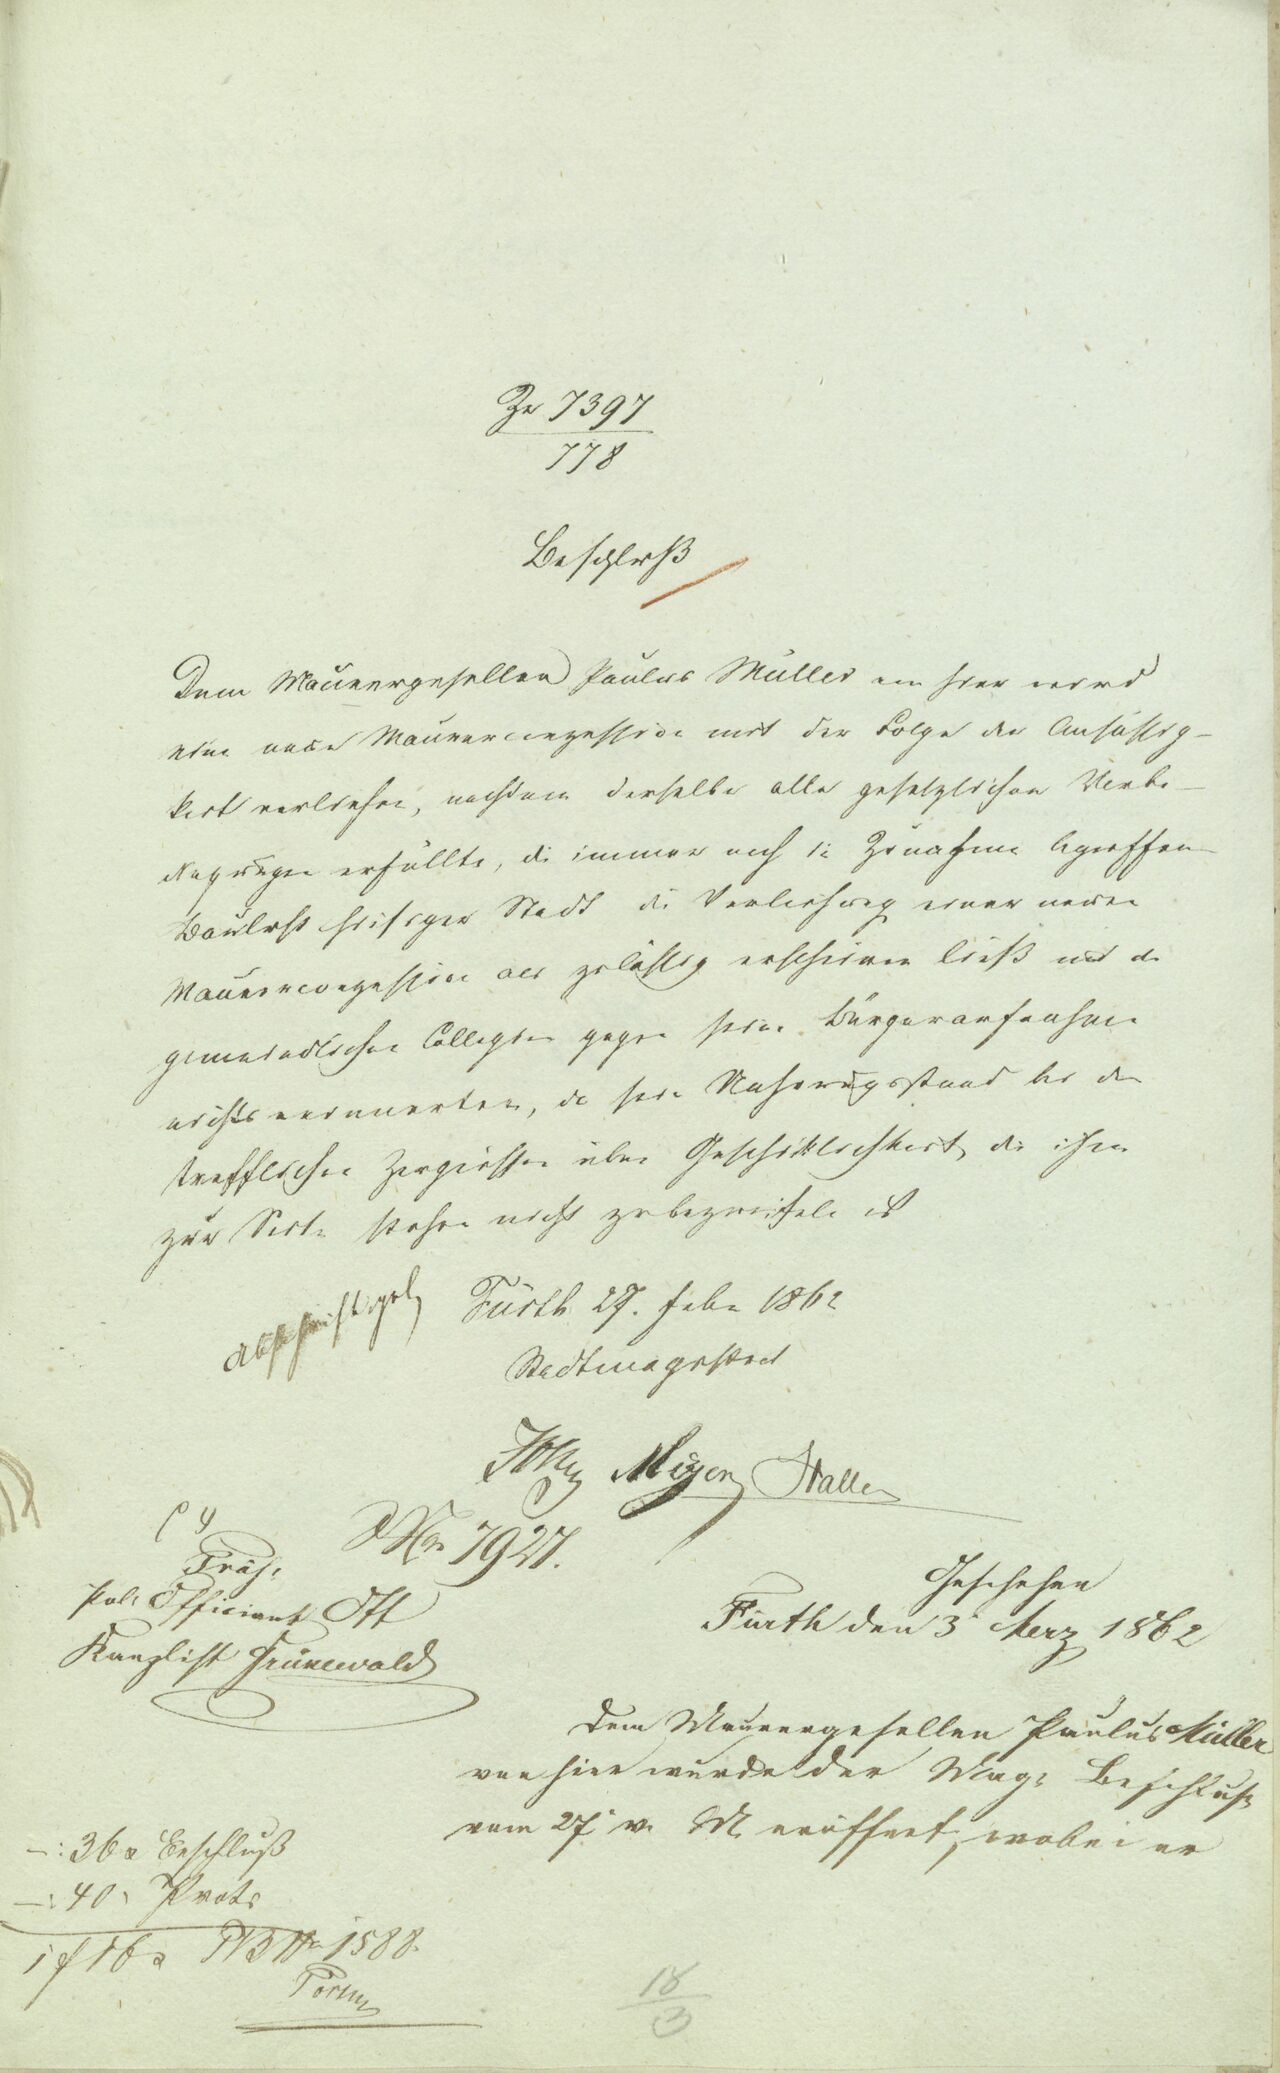 Zr 7397
778
Beschluß
Dem Maurergesellen Paulus Müller von hier wird
eine neue Maurerconzession mit der Folge der Ansässig-
keit verliehen, nachdem derselbe alle gesetzlichen Vorbe-
dingungen erfüllte, die immer noch in Zunahme begriffene
Baulust hiesiger Stadt die Verleihung einer neuen
Maurerconzession als zulässig erscheinen ließ und die
gemeindlichen Collegien gegen seine Bürgeraufnahme
nichts erinnerten, da sein Nahrungsstand bei den
trefflichen Zeugnissen über Geschicklichkeit, die ihm
zur Seite stehen nicht zu bezweifeln ist
Fürth 27. Febr 1862
Stadtmagistrat
Meyer Haller
Nr 7927.
Präs:
Pol. Officiant Ott
Kanzlist Grünewald
Geschehen
Fürth den 3 Merz 1862
Dem Maurergesellen Paulus Müller
von hier wurde der Mag: Beschluß
vom 27. v. M. eröffnet, wobei er
–: 36 x Beschluß
–: 40 x Prot:
1 f 16 x Nr 1588.
18
3